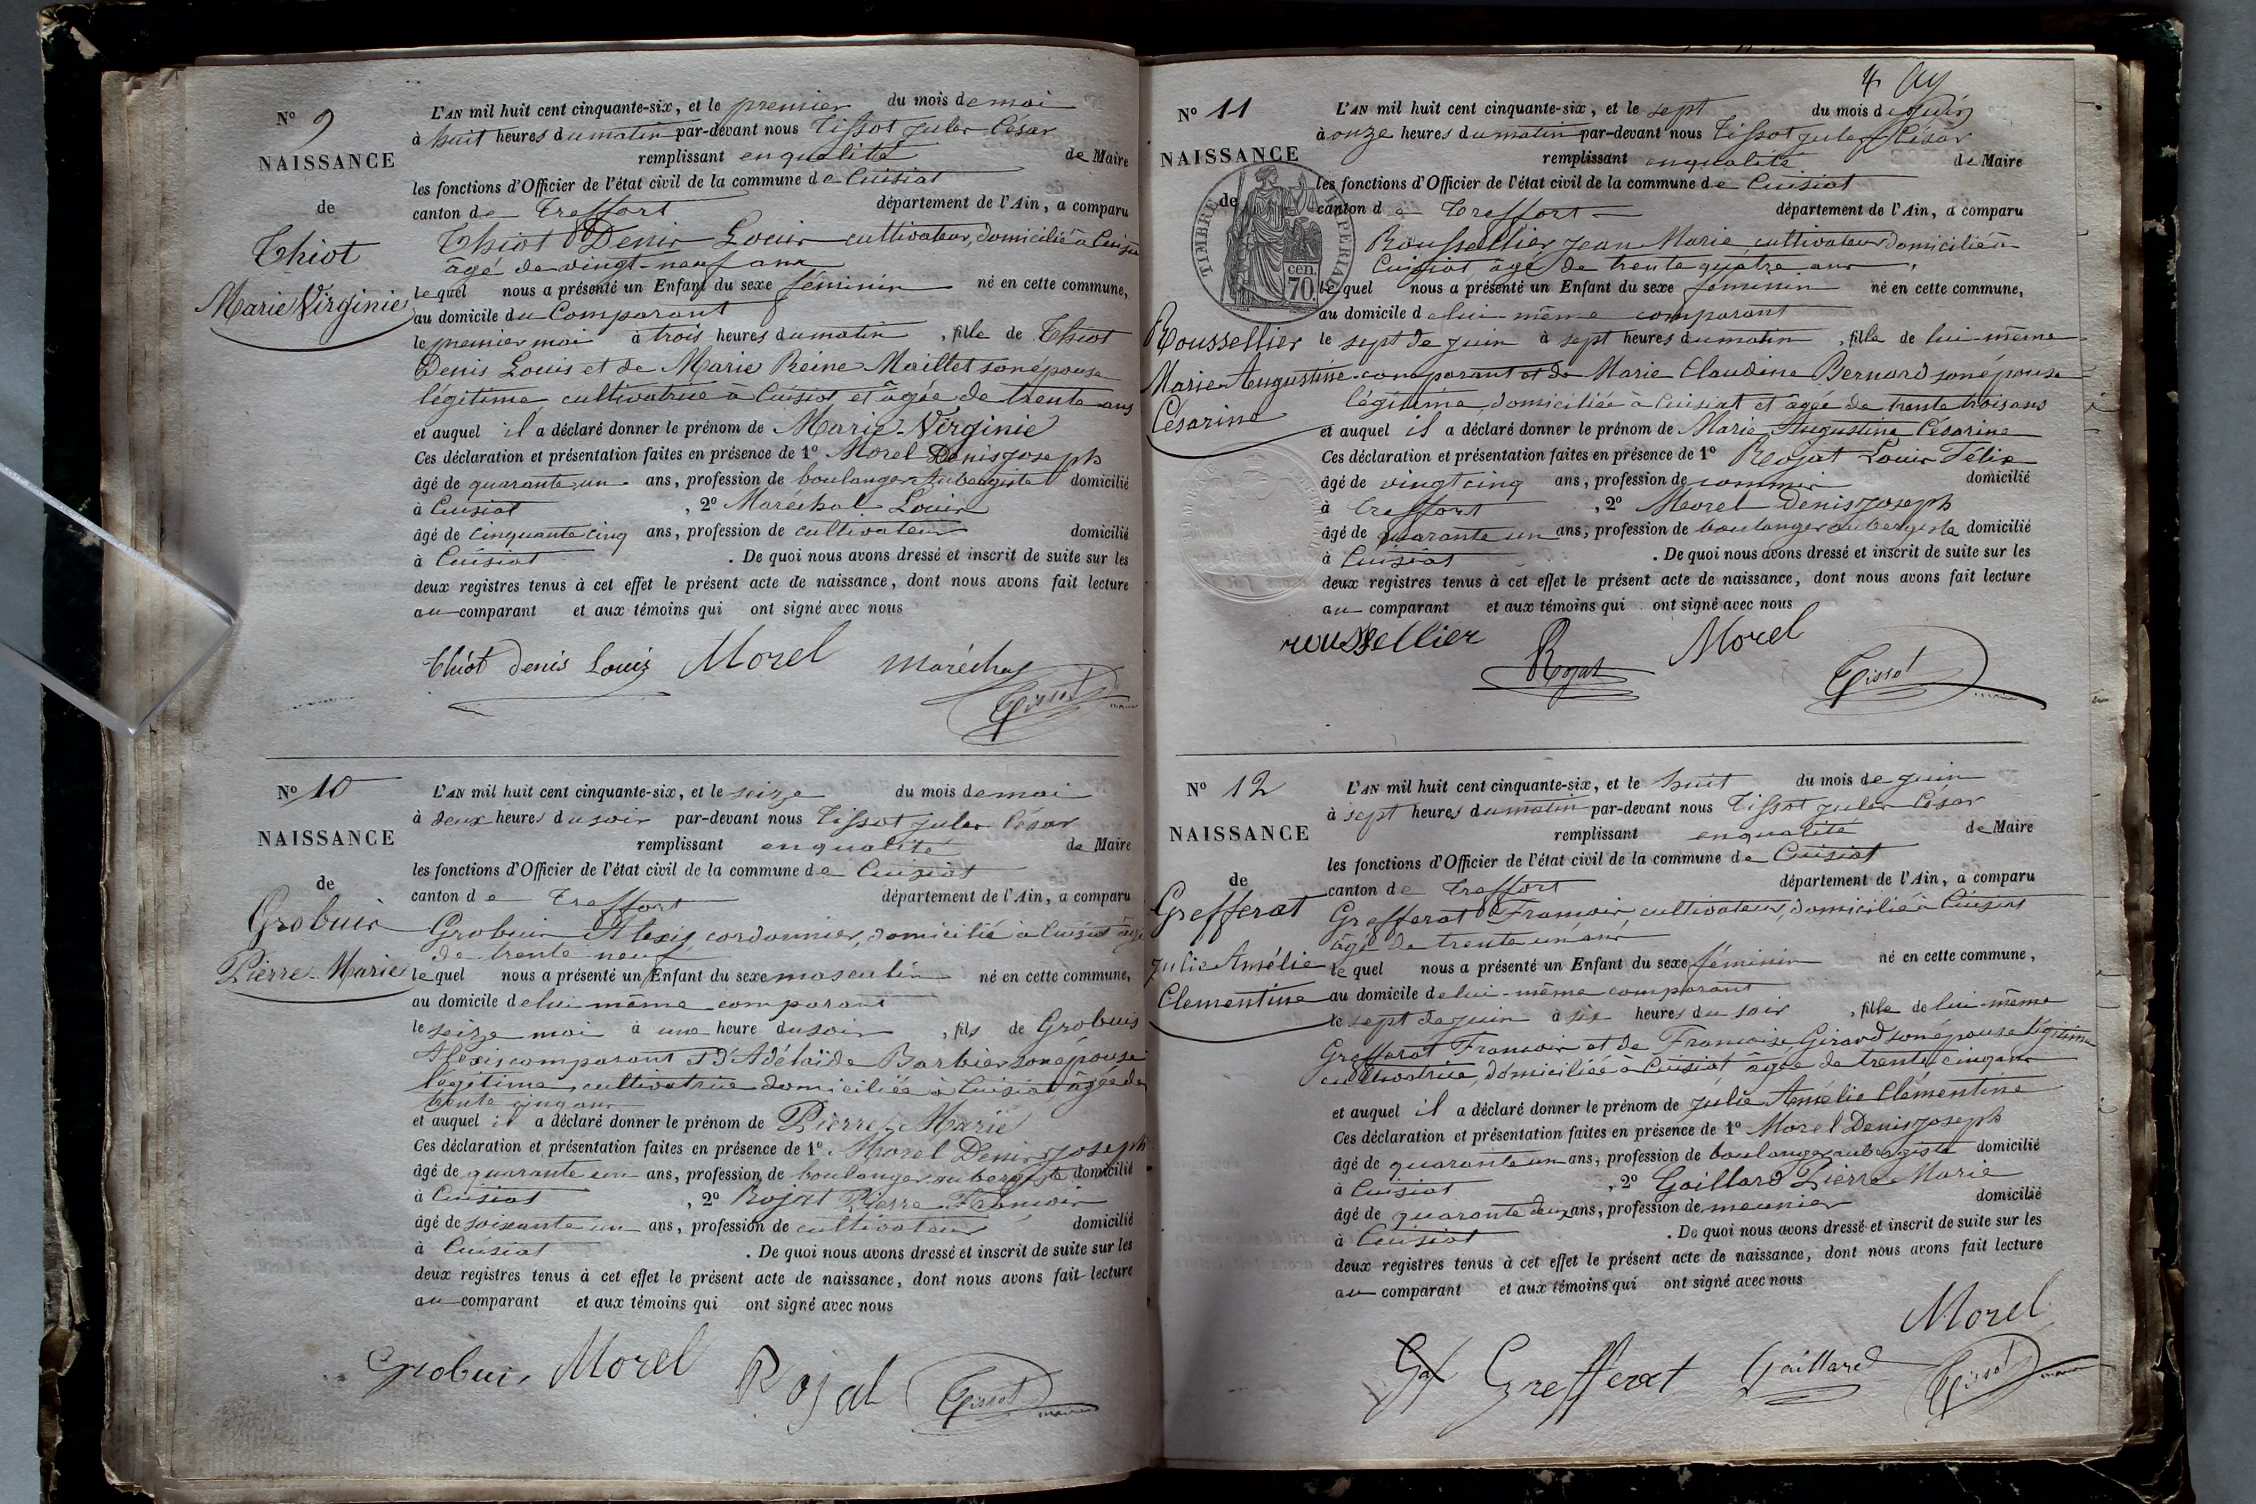 N° 9
NAISSANCE
de
Thiot
Marie Virginie
L'AN mil huit cent cinquante-six, et le premier du mois de mai
à huit heures du matin par-devant nous Tissot Jules César
remplissant en qualité de Maire
les fonctions d'Officier de l'état civil de la commune de Cuisiat
canton de Treffort département de l'Ain, a comparu
Thiot Denis Louis cultivateur, domicilié à Cuisiat
âgé de vingt-neuf ans
lequel nous a présenté un Enfant du sexe féminin né en cette commune,
au domicile du Comparant
le premier mai à trois heures du matin, fille de Thiot
Denis Louis et de Marie Reine Maillet son épouse
légitime cultivatrice à Cuisiat et âgée de trente ans
et auquel il a déclaré donner le prénom de Marie-Virginie
Ces déclaration et présentation faites en présence de 1° Morel Denis Joseph
âgé de quarante un ans, profession de boulanger Aubergiste domicilié
à Cuisiat, 2° Maréchal Louis
âgé de cinquante cinq ans, profession de cultivateur domicilié
à Cuisiat. De quoi nous avons dressé et inscrit de suite sur les
deux registres tenus à cet effet le présent acte de naissance, dont nous avons fait lecture
au comparant et aux témoins qui ont signé avec nous
Thiot denis Louis Morel Maréchal
Tissot maire
N° 10
NAISSANCE
de
Grobuis
Pierre-Marie
L'AN mil huit cent cinquante-six, et le seize du mois de mai
à deux heures du soir par-devant nous Tissot Jules César
remplissant en qualité de Maire
les fonctions d'Officier de l'état civil de la commune de Cuisiat
canton de Treffort département de l'Ain, a comparu
Grobuis Alexis cordonnier, domicilié à Cuisiat âgé
de trente neuf
lequel nous a présenté un Enfant du sexe masculin né en cette commune,
au domicile de lui même comparant
le seize mai à une heure du soir, fils de Grobuis
Alexis comparant et d'Adélaïde Barbier son épouse
légitime, cultivatrice domiciliée à Cuisiat âgée de
trente cinq ans
et auquel il a déclaré donner le prénom de Pierre-Marie
Ces déclaration et présentation faites en présence de 1° Morel Denis Joseph
âgé de quarante un ans, profession de boulanger aubergiste domicilié
à Cuisiat, 2° Rojat Pierre François
âgé de soixante un ans, profession de cultivateur domicilié
à Cuisiat. De quoi nous avons dressé et inscrit de suite sur les
deux registres tenus à cet effet le présent acte de naissance, dont nous avons fait lecture
au comparant et aux témoins qui ont signé avec nous
Grobuis Morel Rojat Tissot maire
4
N° 11
NAISSANCE
de
TIMBRE IMPERIAL
cen.
70.
Roussellier
Marie Augustine
Césarine
L'AN mil huit cent cinquante-six, et le sept du mois de juin
à onze heures du matin par-devant nous Tissot Jules César
remplissant en qualité de Maire
les fonctions d'Officier de l'état civil de la commune de Cuisiat
canton de Treffort département de l'Ain, a comparu
Roussellier Jean Marie cultivateur domicilié à
Cuisiat âgé de trente quatre ans
lequel nous a présenté un Enfant du sexe féminin né en cette commune,
au domicile de lui-même comparant
le sept de juin à sept heures du matin, fille de lui-même
comparant et de Marie Claudine Bernard son épouse
légitime, domiciliée à Cuisiat et âgée de trente trois ans
et auquel il a déclaré donner le prénom de Marie Augustine Césarine
Ces déclaration et présentation faites en présence de 1° Rojat Louis Félix
âgé de vingt cinq ans, profession de commis domicilié
à Treffort, 2° Morel Denis Joseph
âgé de quarante un ans, profession de boulanger aubergiste domicilié
à Cuisiat. De quoi nous avons dressé et inscrit de suite sur les
deux registres tenus à cet effet le présent acte de naissance, dont nous avons fait lecture
au comparant et aux témoins qui ont signé avec nous
roussellier Rojat Morel Tissot
N° 12
NAISSANCE
de
Grefferat
Julie Amélie
Clementine
L'AN mil huit cent cinquante-six, et le huit du mois de juin
à sept heures du matin par-devant nous Tissot Jules César
remplissant en qualité de Maire
les fonctions d'Officier de l'état civil de la commune de Cuisiat
canton de Treffort département de l'Ain, a comparu
Grefferat François, cultivateur, domicilié à Cuisiat
âgé de trente un ans
lequel nous a présenté un Enfant du sexe féminin né en cette commune,
au domicile de lui-même comparant
le sept de juin à six heures du soir, fille de lui-même
Grefferat François et de Françoise Girard son épouse légitime
cultivatrice, domiciliée à Cuisiat âgée de trente cinq ans
et auquel il a déclaré donner le prénom de Julie Amélie Clémentine
Ces déclaration et présentation faites en présence de 1° Morel Denis Joseph
âgé de quarante un ans, profession de boulanger aubergiste domicilié
à Cuisiat, 2° Gaillard Pierre Marie
âgé de quarante deux ans, profession de meunier domicilié
à Cuisiat. De quoi nous avons dressé et inscrit de suite sur les
deux registres tenus à cet effet le présent acte de naissance, dont nous avons fait lecture
au comparant et aux témoins qui ont signé avec nous
Morel
Grefferat Gaillard Tissot maire